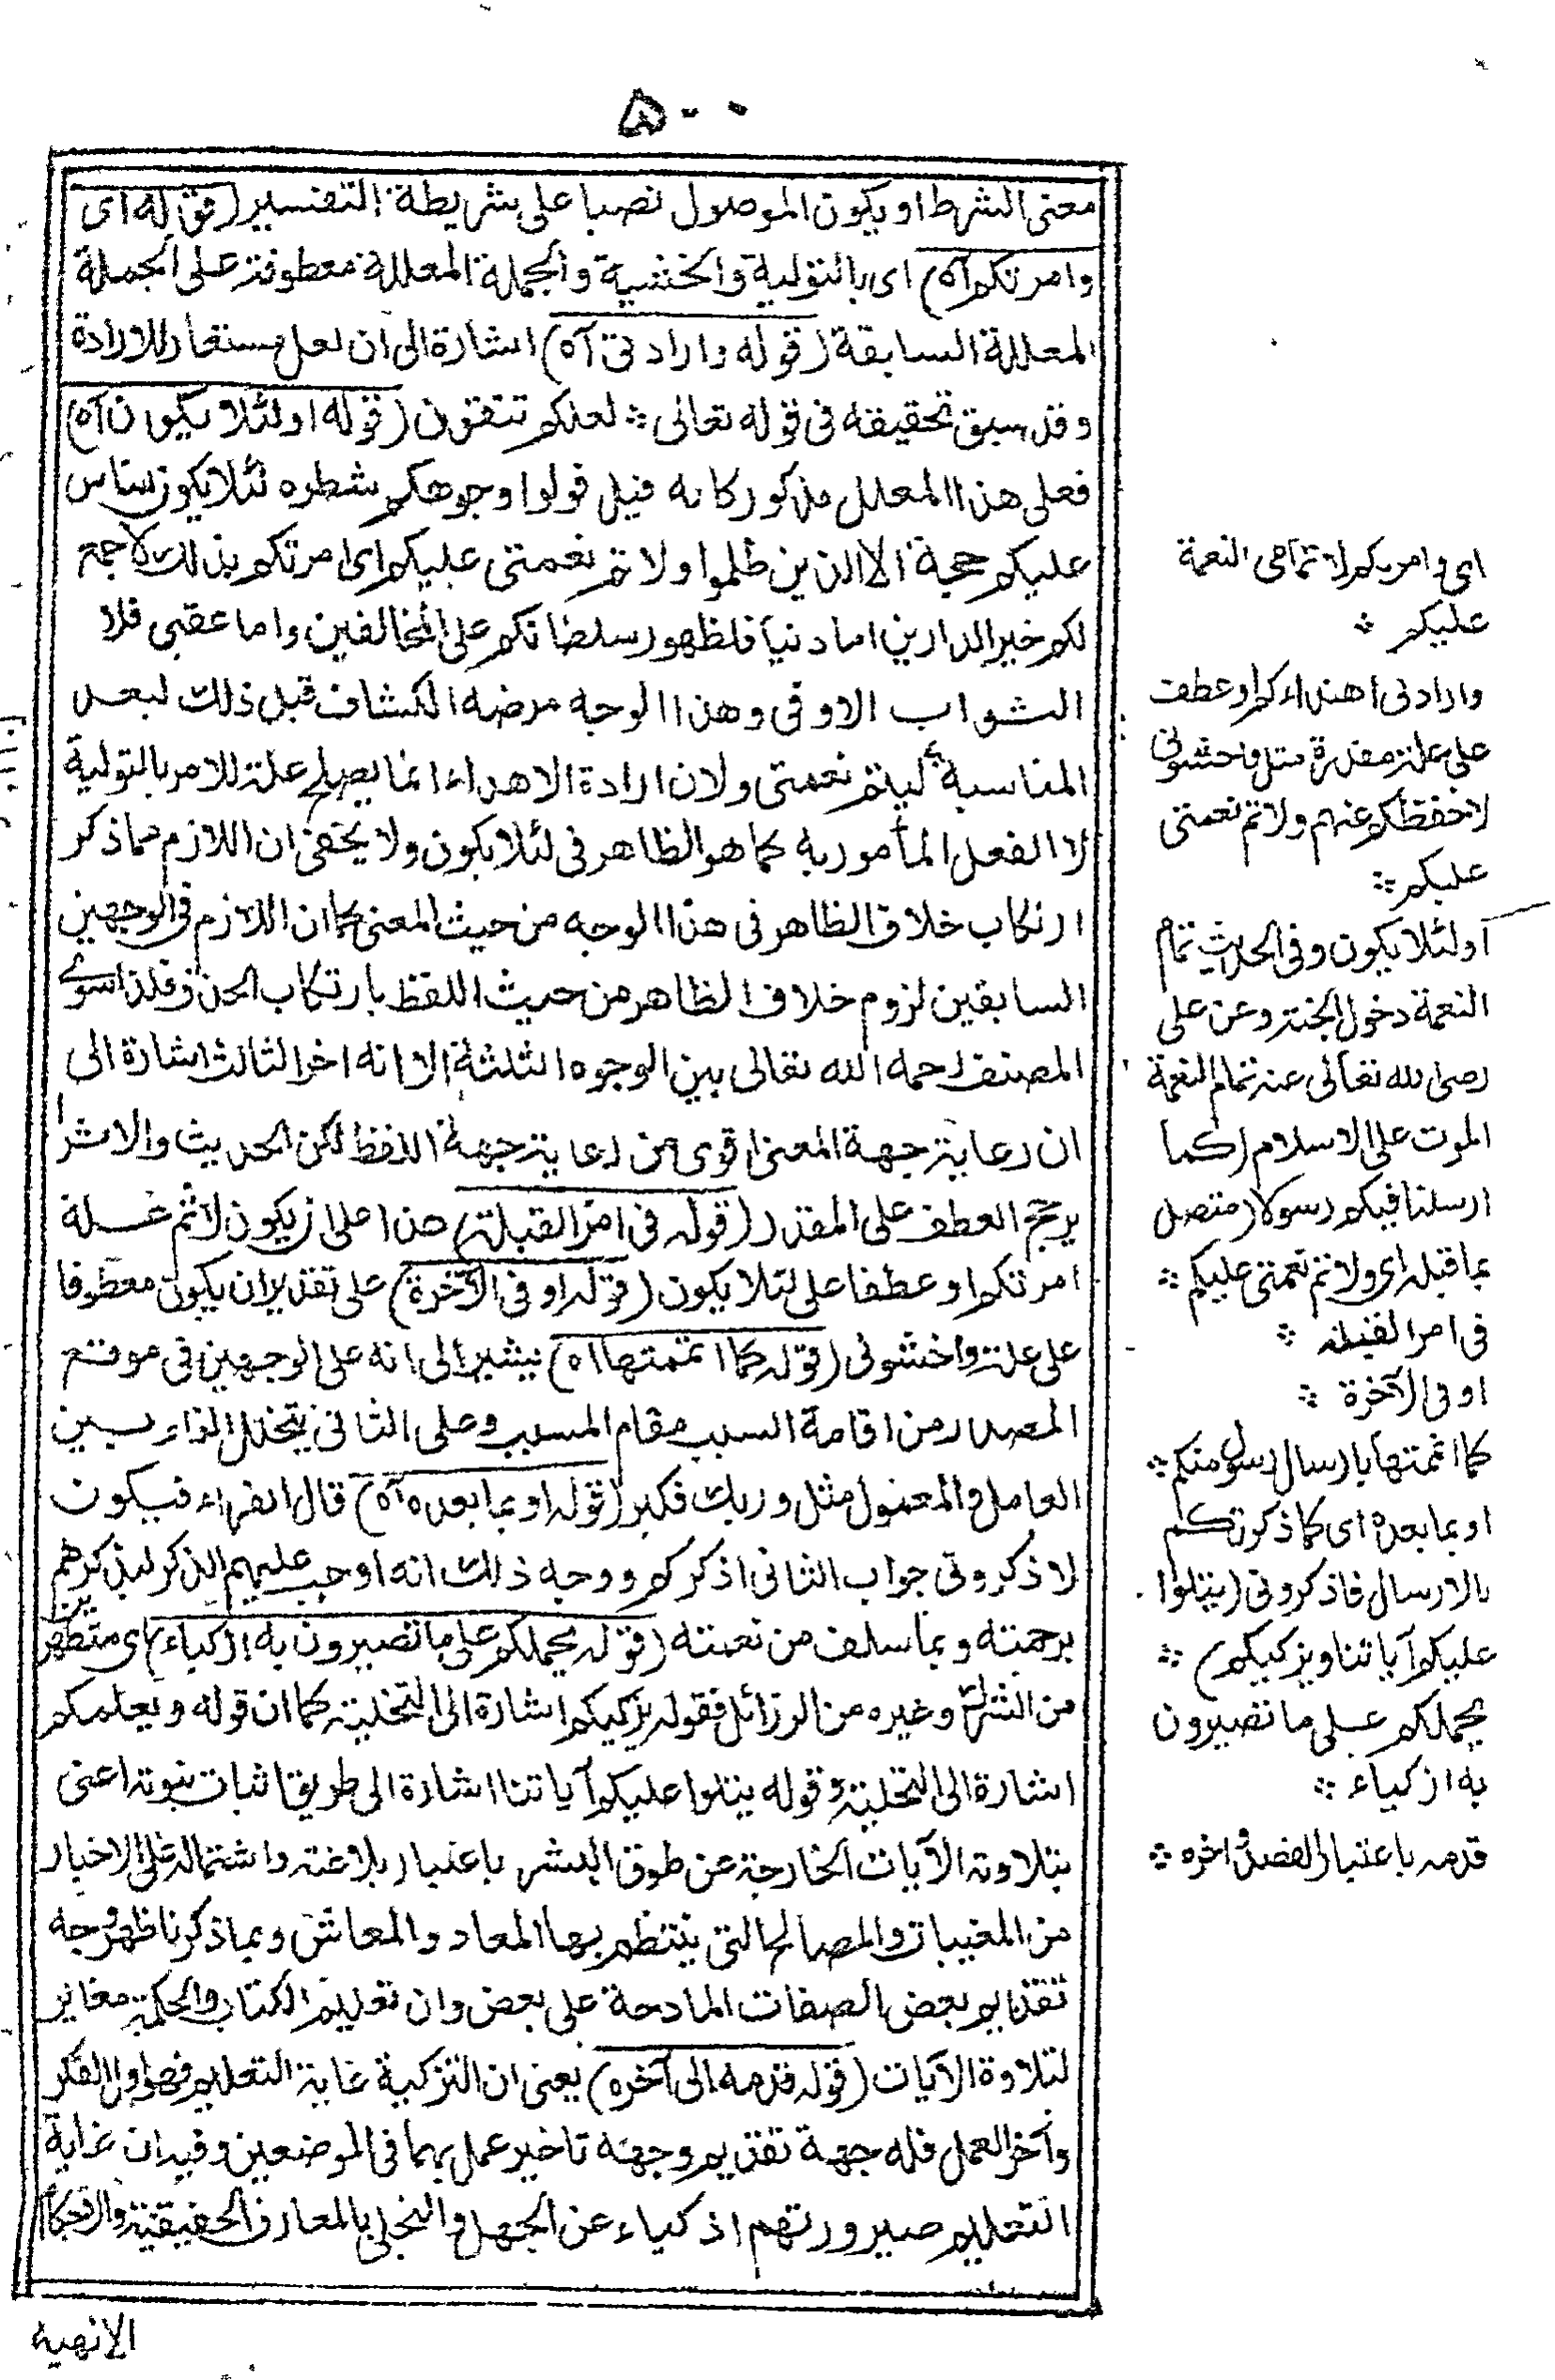 ٥٠٠
معنى الشرط او يكون الموصول نصبا على شريطة التفسير (قوله اى
وامرتكم آه) اى بالتولية والخشية والجملة المعللة معطوفة على الجملة
المعللة السابقة (قوله وارادتى آه) اشارة الى ان لعل مستعار للارادة
وقد سبق تحقيقه فى قوله تعالى ؞ لعلكم تتقون (قوله او لئلا يكون آه)
فعلى هذا المعلل مذكور كانه قيل فولوا وجوهكم شطره لئلا يكون للناس
عليكم حجة الا الذين ظلموا ولاتم نعمتى عليكم اى امرتكم بذلك لاجمع
لكم خير الدارين اما دنيا فلظهور سلطانكم على المخالفين واما عقبى فلا
الثواب الاوفى وهذا الوجه مرضه الكشاف قبل ذلك لبعد
المناسبة ليتم نعمتى ولان ارادة الاهداء انما يصلح علة للامر بالتولية
لا الفعل المأمور به كما هو الظاهر فى لئلا يكون ولا يخفى ان اللازم مما ذكر
ارتكاب خلاف الظاهر فى هذا الوجه من حيث المعنى كما ان اللازم فى الوجهين
السابقين لزوم خلاف الظاهر من حيث اللفظ بارتكاب الحذف فلذا سوى
المصنف رحمه الله تعالى بين الوجوه الثلثة الا انه اخر الثالث اشارة الى
ان رعاية جهة المعنى اقوى من رعاية جهة اللفظ لكن الحديث والاثر
يرجح العطف على المقدر (قوله فى امر القبلة) هذا على ان يكون لاتم علة
امرتكم او عطفا على لئلا يكون (قوله او فى الآخرة) على تقدير ان يكون معطوفا
على علة واخشونى (قوله كما اتممتها اه) يشير الى انه على الوجهين فى موقع
المصدر من اقامة السبب مقام المسبب وعلى الثانى يتخلل الفاء بين
العامل والمعمول مثل وربك فكبر (قوله او بما بعده آه) قال الفراء فيكون
لاذكرونى جواب الثانى اذكركم ووجه ذلك انه اوجب عليهم الذكر ليذكرهم
برحمته وبما سلف من نعمته (قوله يحملكم على ما تصيرون به ازكياء) اى متطهرين
من الشرك وغيره من الرزائل فقوله يزكيكم اشارة الى التخلية كما ان قوله ويعلمكم
اشارة الى التحلية وقوله يتلوا عليكم آياتنا اشارة الى طريق اثبات نبوته اعنى
بتلاوته الآيات الخارجة عن طوق البشر باعتبار بلاغته واشتماله على الاخبار
من المغيبات والمصالح التى ينتظم بها المعاد والمعاش وبما ذكرنا ظهر وجه
تقديم بعض الصفات المادحة على بعض وان تعليم الكتاب والحكمة مغاير
لتلاوة الآيات (قوله قدمه الى آخره) يعنى ان التزكية غاية التعليم فهو اول الفكر
وآخر العمل فله جهة تقديم وجهة تاخير عمل بهما فى الموضعين وفيه ان غاية
التعليم صيرورتهم اذكياء عن الجهل والتحلى بالمعارف الحقيقية والاحكام
الالهية
اى وامرتكم لاتمامى النعمة
عليكم ؞
وارادتى اهتداءكم او عطف
على علة مقدرة مثل واخشونى
لاحفظكم عنهم ولاتم نعمتى
عليكم ؞
او لئلا يكون وفى الحديث تمام
النعمة دخول الجنة وعن على
رضى الله تعالى عنه تمام النعمة
الموت على الاسلام (كما
ارسلنا فيكم رسولا) متصل
بما قبله اى ولاتم نعمتى عليكم ؞
فى امر القبلة ؞
او فى الآخرة ؞
كما اتممتها بارسال رسول منكم ؞
او بما بعده اى كما ذكرتكم
بالارسال فاذكرونى (يتلوا
عليكم آياتنا ويزكيكم) ؞
يحملكم على ما تصيرون
به ازكياء ؞
قدمه باعتبار القصد واخره ؞